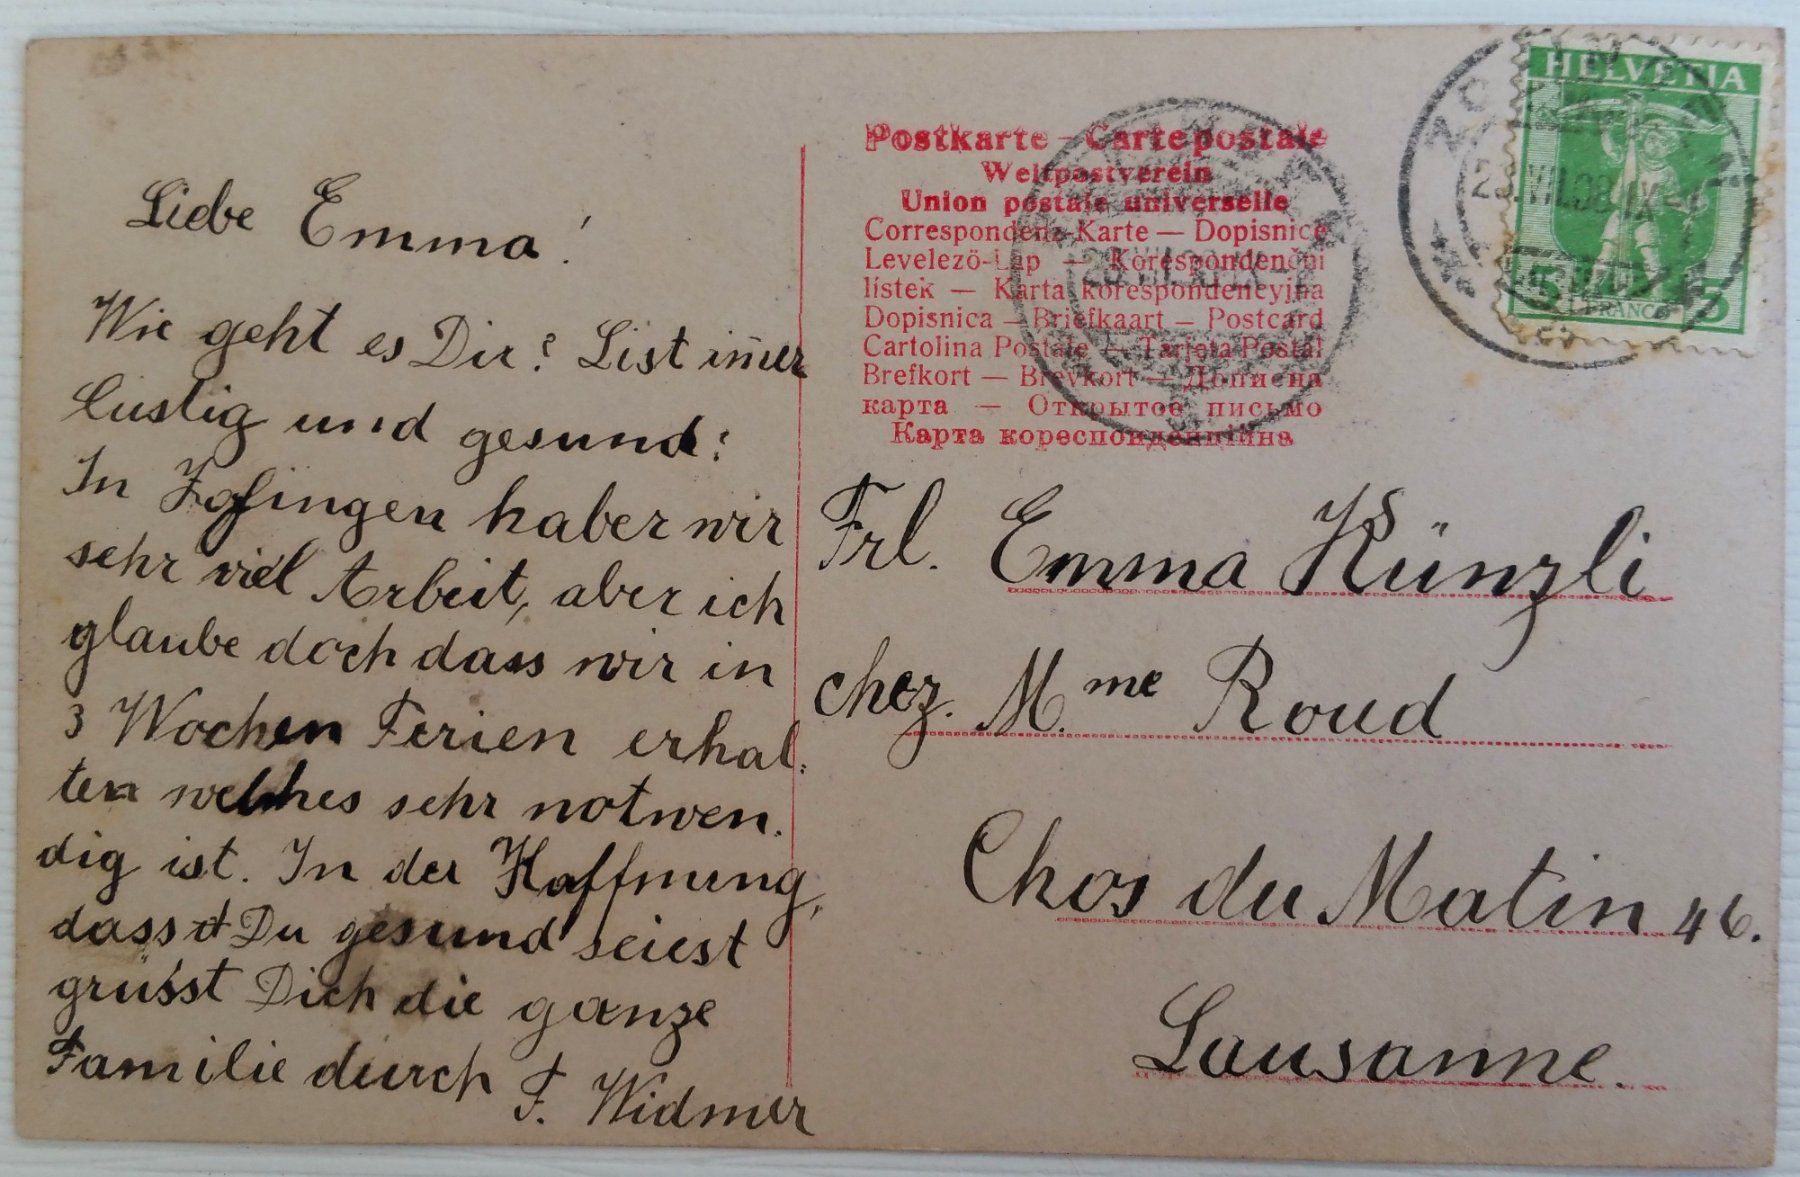 Liebe Emma!
Wie geht es Dir? List im̄er
lustig und gesund?
In Zofingen haben wir
sehr viel Arbeit, aber ich
glaube doch dass wir in
3 Wochen Ferien erhal-
ten welches sehr notwen-
dig ist. In der Hoffnung,
dass Du gesund seiest
grüsst Dich die ganze
Familie durch
F. Widmer
Postkarte – Carte postale
Weltpostverein
Union postale universelle
Correspondenz-Karte — Dopisnice
Levelező-Lap — Korespondenčni
listek — Karta korespondencyjna
Dopisnica — Briefkaart — Postcard
Cartolina Postale — Tarjeta Postal
Brefkort — Brevkort — Дописна
карта — Открытое письмо
Карта кореспонденційна
HELVETIA
5 FRANCO 5
VII.08.IX
Frl. Emma Künzli
chez. M.me Roud
Chos du Matin 46.
Lausanne.